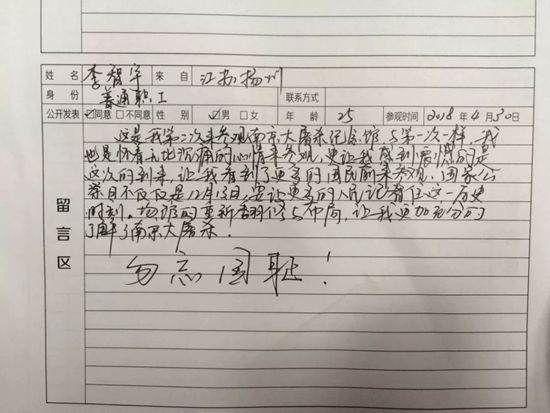 姓名 李智军 来自 江苏扬州
身份 普通职工 联系方式
公开发表 ☑同意 □不同意 性别 ☑男 □女 年龄 25 参观时间 2018年4月30日
留言区
这是我第二次来参观南京大屠杀纪念馆,与第一次一样,我
也是怀着无比沉痛的心情来参观,更让我感到震惊的是
这次的到来,让我看到了更多的国民前来参观,国家公
祭日不仅仅是12月13日,要让更多的人民记着住这一历史
时刻。场馆的重新翻修与布局,让我更加充分的
了解了南京大屠杀.
勿忘国耻!